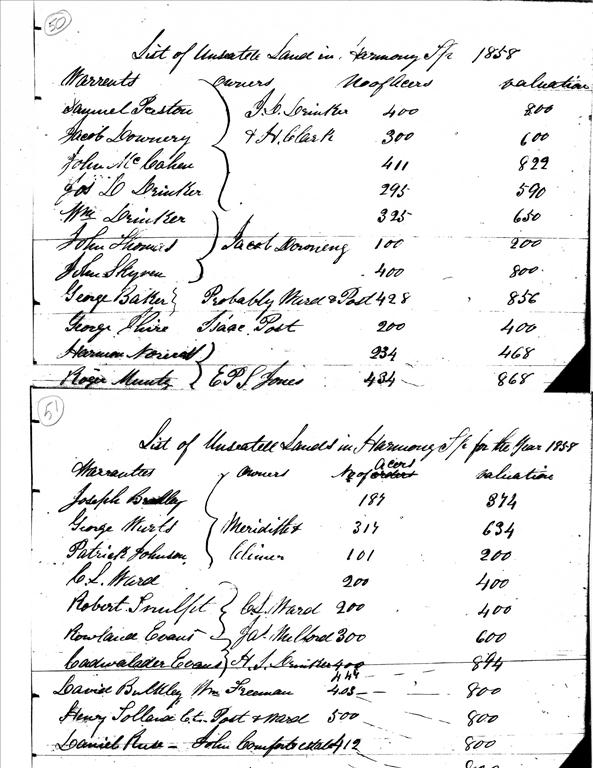 50
List of Unseatell Land in Harmony T/p 1858
Warrents owners No of Acers valuation
Samuel Preston J.D. Drinker 400 800
Jacob Downery & H. Clark 300 600
John Mc Cahen 411 822
Jos D Drinker 295 590
Wm Drinker 325 650
John Thomas Jacob Downeng 100 200
John Skyren 400 800
George Baker Probably Ward & Post 428 856
George Isaac Post 200 400
Harmon 234 468
Roger Muntz E P S Jones 434 868
51
List of Unseatell Lands in Harmony T/p for the Year 1858
Warrantees owners No of Acers valuation
Joseph Bradley 187 374
George Meridith & 317 634
Patrick Johnson Climer 101 200
C. L. Ward 200 400
Robert C L. Ward 200 400
Rowland Evans Jas. Milford 300 600
Cadwalader Evans H. S. Drinker 400 894
447
David Bulkley Wm Freeman 403 800
Henry Post & Ward 500 800
Daniel Ruse - John Comforts estate 412 800